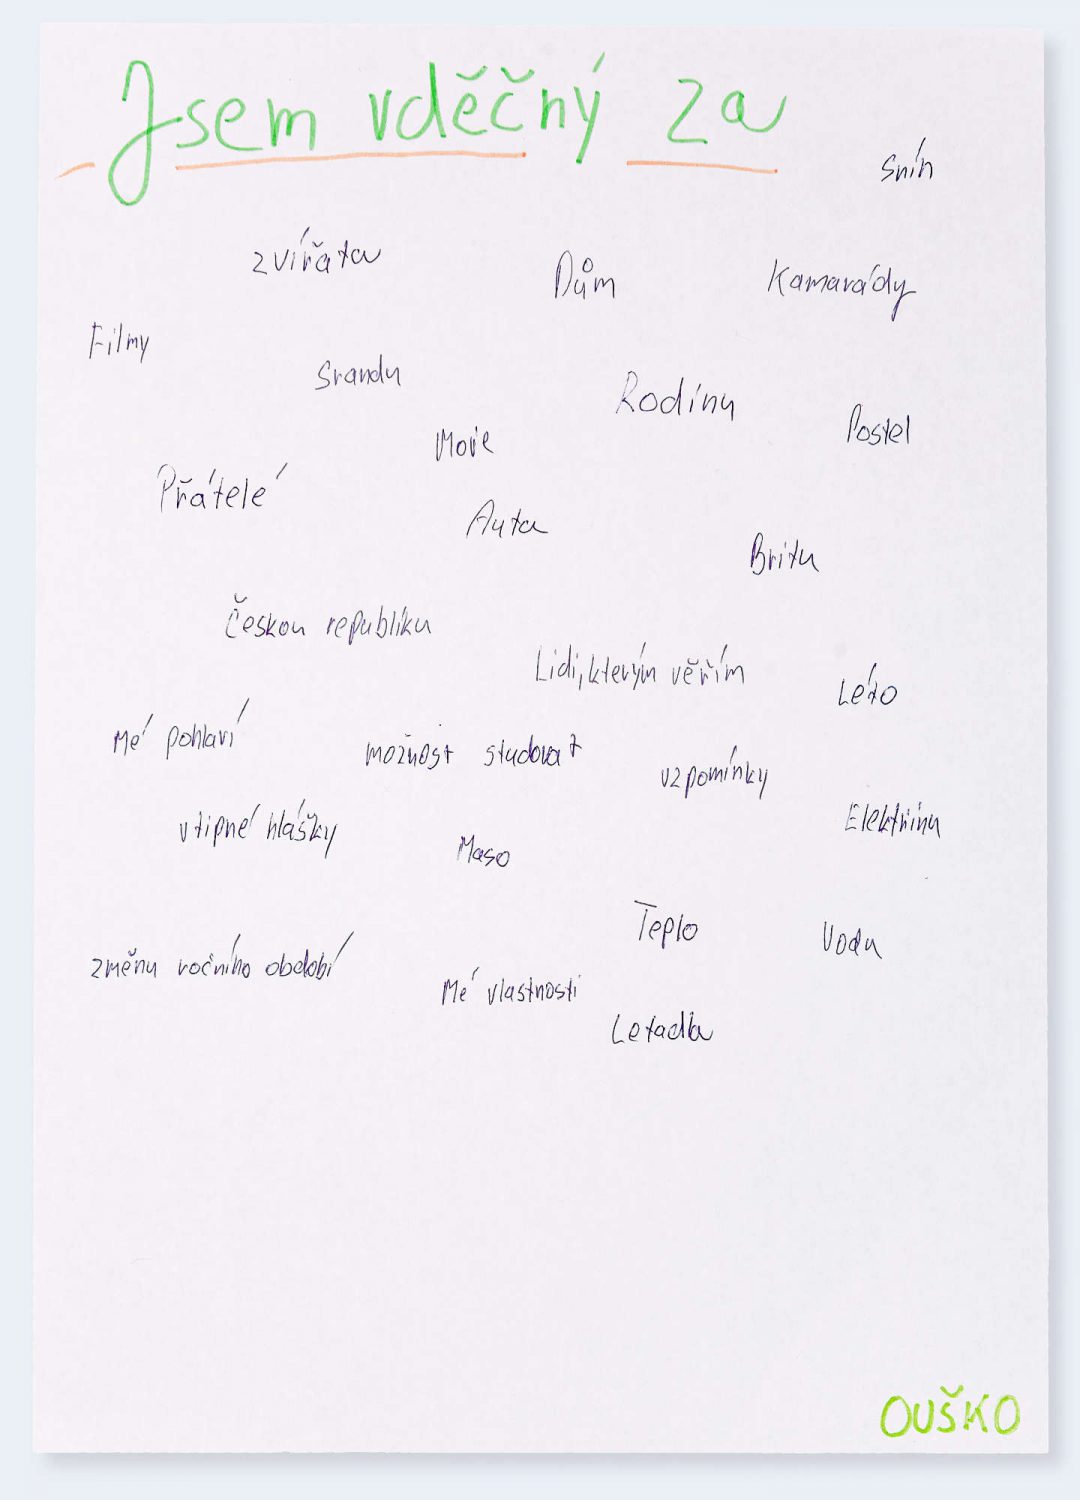 Jsem vděčný za
Sníh
zvířata
Dům
Kamarády
Filmy
Srandu
Rodinu
Postel
Moře
Přátelé
Auta
Britu
Českou republiku
Lidi, kterým věřím
Léto
Mé pohlaví
možnost studovat
vzpomínky
vtipné hlášky
Elektřinu
Maso
Teplo
Vodu
změnu ročního období
Mé vlastnosti
Letadla
OUŠKO